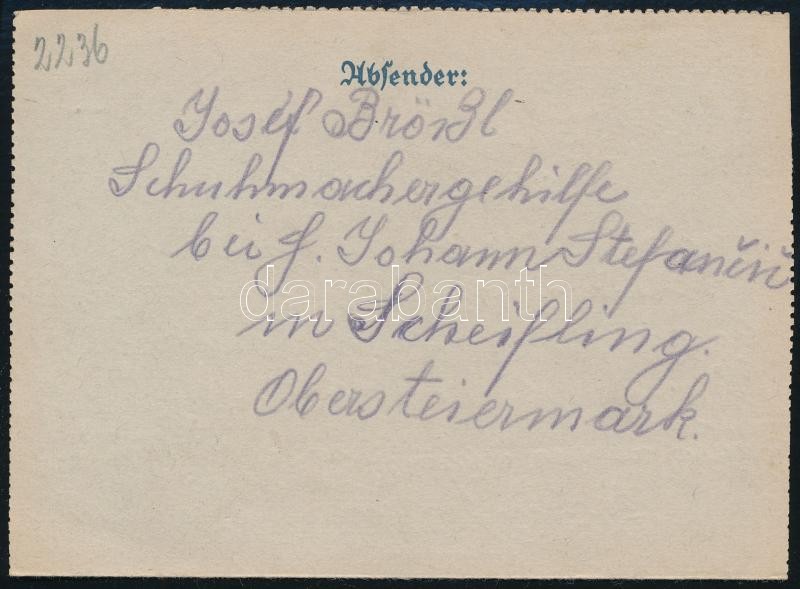 2236
Absender:
Josef Brößl
Schuhmachergehilfe
bei H. Johann Stefančič
in Scheifling.
Obersteiermark.
darabanth